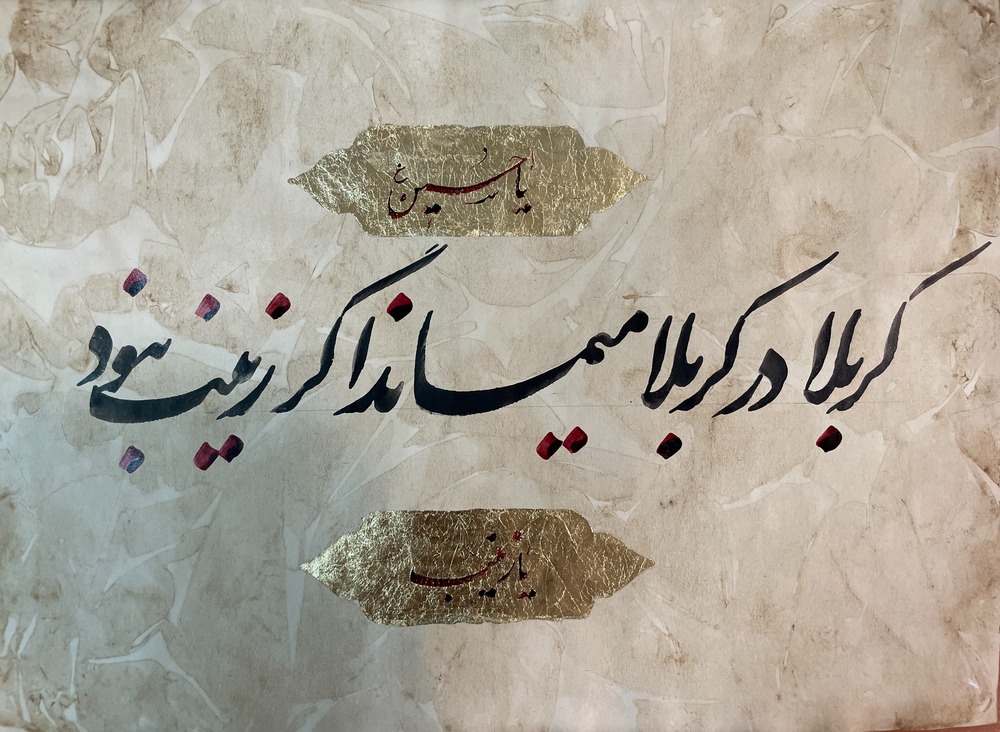 یا حسین
کربلا در کربلا میماند اگر زینب نبود
یا زینب